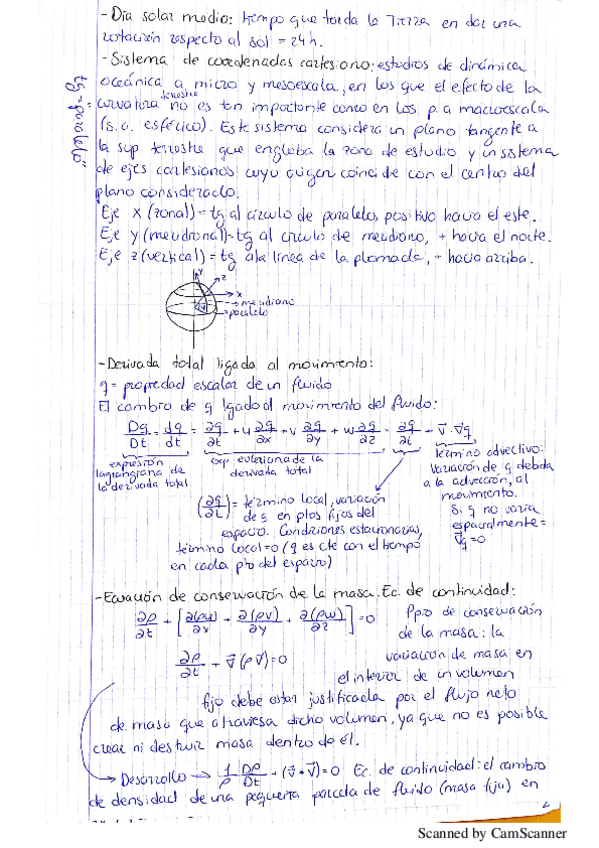 - Día solar medio: tiempo que tarda la Tierra en dar una
rotación respecto al sol = 24h.
- Sistema de coordenadas cartesiano: estudios de dinámica
oceánica a micro y mesoescala, en los que el efecto de la
curvatura terrestre no es tan importante como en los p. a macroescala
(s.c. esférico). Este sistema considera un plano tangente a
la sup. terrestre que engloba la zona de estudio y un sistema
de ejes cartesianos cuyo origen coincide con el centro del
plano considerado.
tg = "paralelo"
Eje x (zonal) = tg al círculo de paralelos, positivo hacia el este.
Eje y (meridional) = tg al círculo de meridiano, + hacia el norte.
Eje z (vertical) = tg a la línea de la plomada, + hacia arriba.
y
z
x
meridiano
paralelo
- Derivada total ligada al movimiento:
q = propiedad escalar de un fluido
El cambio de q ligado al movimiento del fluido:
Dq/Dt = dq/dt = ∂q/∂t + u ∂q/∂x + v ∂q/∂y + w ∂q/∂z = ∂q/∂t + v⃗ · ∇⃗q
expresión
lagrangiana de
la derivada total
exp. euleriana de la
derivada total
término advectivo:
variación de q debida
a la advección, al
movimiento.
Si q no varía
espacialmente =
∇⃗q = 0
(∂q/∂t) = término local, variación
de q en ptos fijos del
espacio. Condiciones estacionarias,
término local = 0 (q es cte con el tiempo
en cada pto del espacio)
- Ecuación de conservación de la masa. Ec. de continuidad:
∂ρ/∂t + [∂(ρu)/∂x + ∂(ρv)/∂y + ∂(ρw)/∂z] = 0
∂ρ/∂t + ∇⃗(ρv⃗) = 0
Ppio de conservación
de la masa: la
variación de masa en
el interior de un volumen
fijo debe estar justificada por el flujo neto
de masa que atraviesa dicho volumen, ya que no es posible
crear ni destruir masa dentro de él.
→ Desarrollo → 1/ρ Dρ/Dt + (∇⃗ · v⃗) = 0 Ec. de continuidad: el cambio
de densidad de una pequeña parcela de fluido (masa fija) en
Scanned by CamScanner